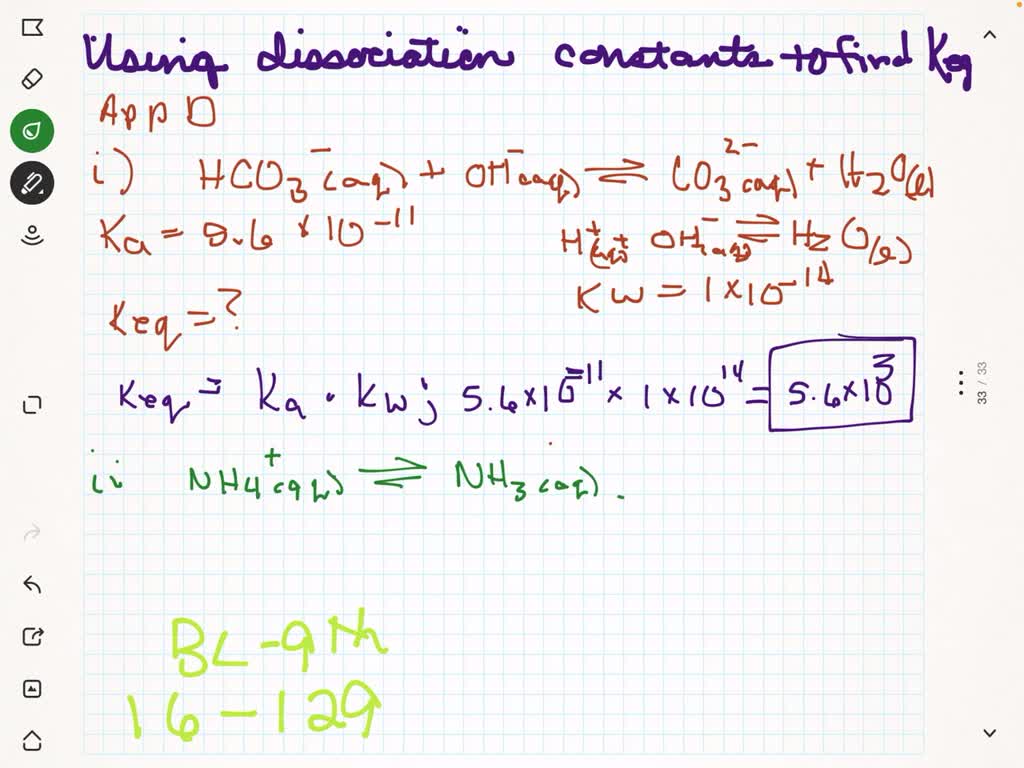 Using dissociation constants to find Keq
App D
i) HCO₃⁻(aq) + OH⁻(aq) ⇌ CO₃²⁻(aq) + H₂O(l)
Ka = 5.6 × 10⁻¹¹
H⁺(aq) + OH⁻(aq) ⇌ H₂O(l)
Kw = 1 × 10⁻¹⁴
Keq = ?
Keq = Ka · Kw; 5.6 × 10⁻¹¹ × 1 × 10¹⁴ = 5.6 × 10³
ii NH₄⁺(aq) ⇌ NH₃(aq).
BL - 9th
16 - 129
33 / 33